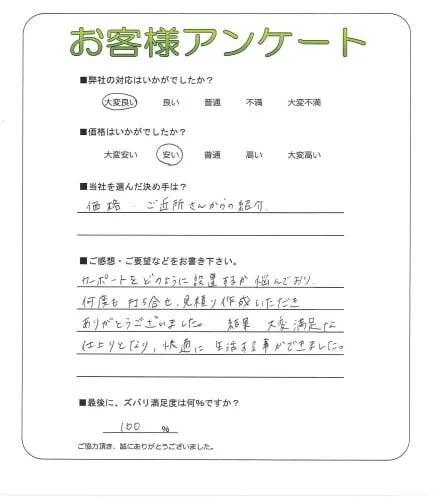 お客様アンケート
■弊社の対応はいかがでしたか？
大変良い 良い 普通 不満 大変不満
■価格はいかがでしたか？
大変安い 安い 普通 高い 大変高い
■当社を選んだ決め手は？
価格・ご近所さんからの紹介.
■ご感想・ご要望などをお書き下さい。
カーポートをどのように設置するか悩んでおり、
何度も打ち合せ、見積り作成いただき
ありがとうございました。 結果、大変満足な
仕上りとなり、快適に生活する事ができました。
■最後に、ズバリ満足度は何%ですか？
100 %
ご協力頂き、誠にありがとうございました。